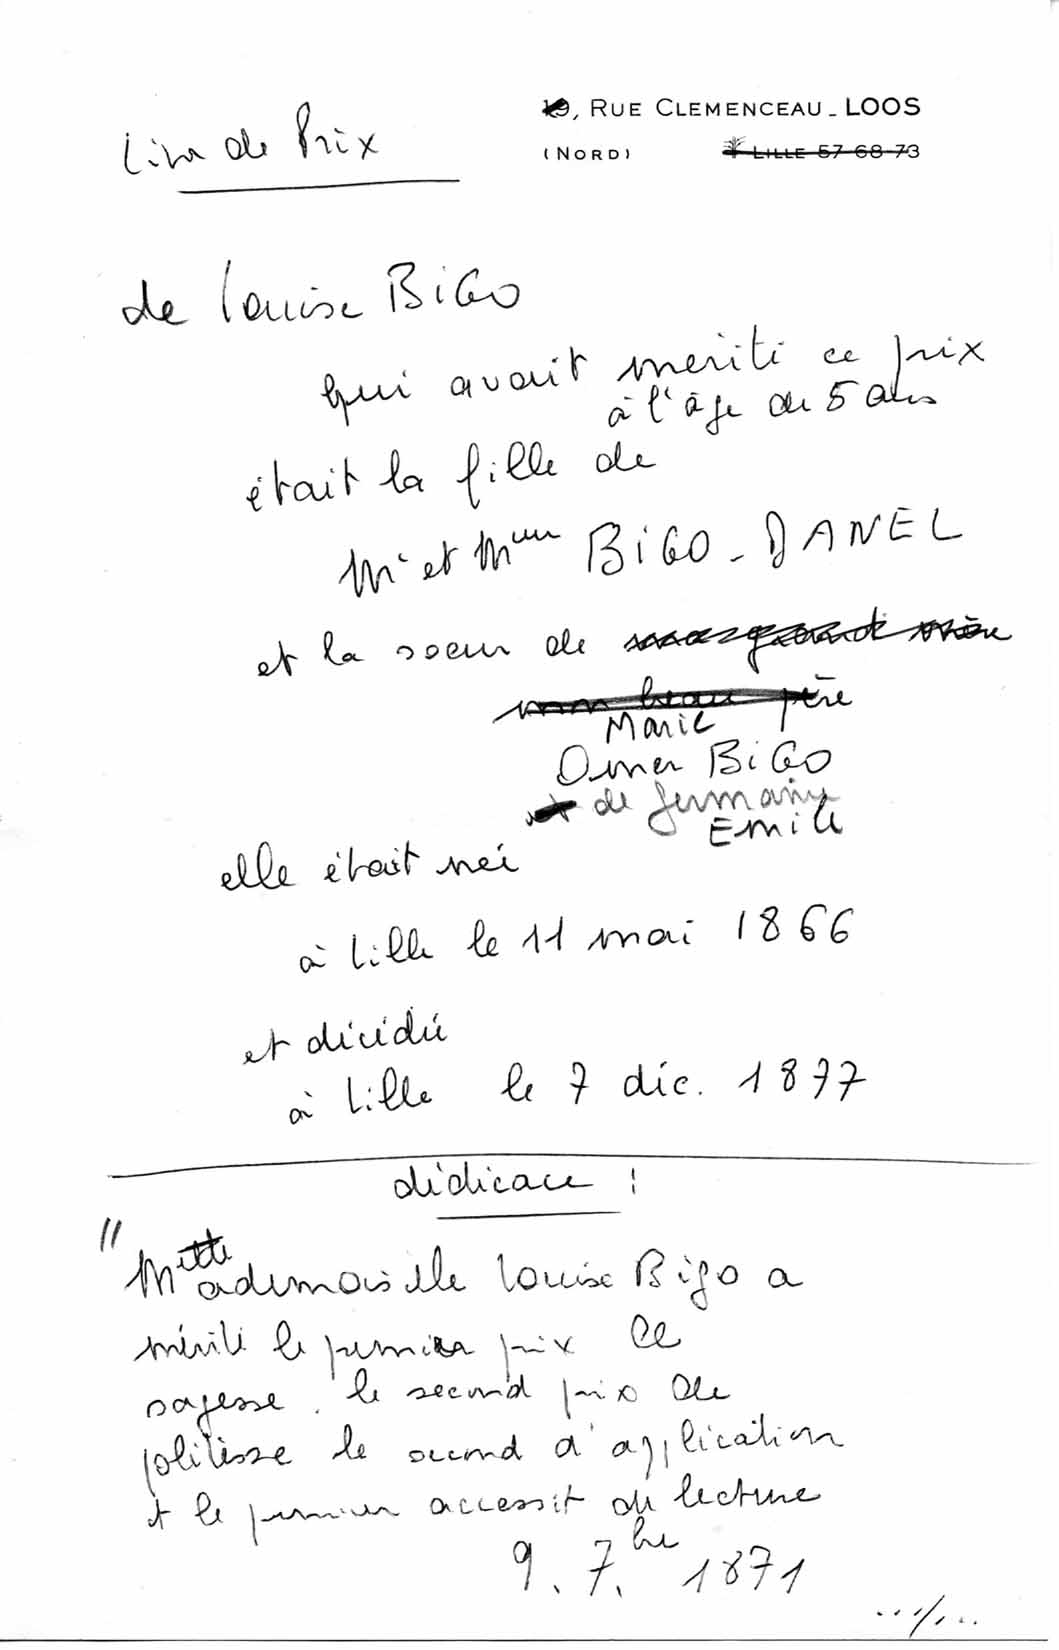 19, RUE CLEMENCEAU - LOOS
(NORD) LILLE 57-68-73
Livre de Prix
de Louise BIGO
qui avait mérité ce prix
à l'âge de 5 ans
était la fille de
Mr et Mme BIGO - DANEL
et la soeur de ma grand mère
mon beau père
Marie
Omer BIGO
et de Germaine
Emile
elle était née
à Lille le 11 mai 1866
et décédée
à Lille le 7 déc. 1877
dédicace :
"Mademoiselle Louise Bigo a
mérité le premier prix de
sagesse. le second prix de
politesse le second d'application
et le premier accessit de lecture
9. 7.bre 1871
...../.....